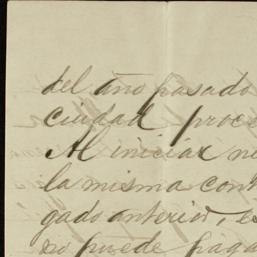 del año pasado
ciudad proce
Al iniciar
la misma con
gado anterior, e
no puede paga